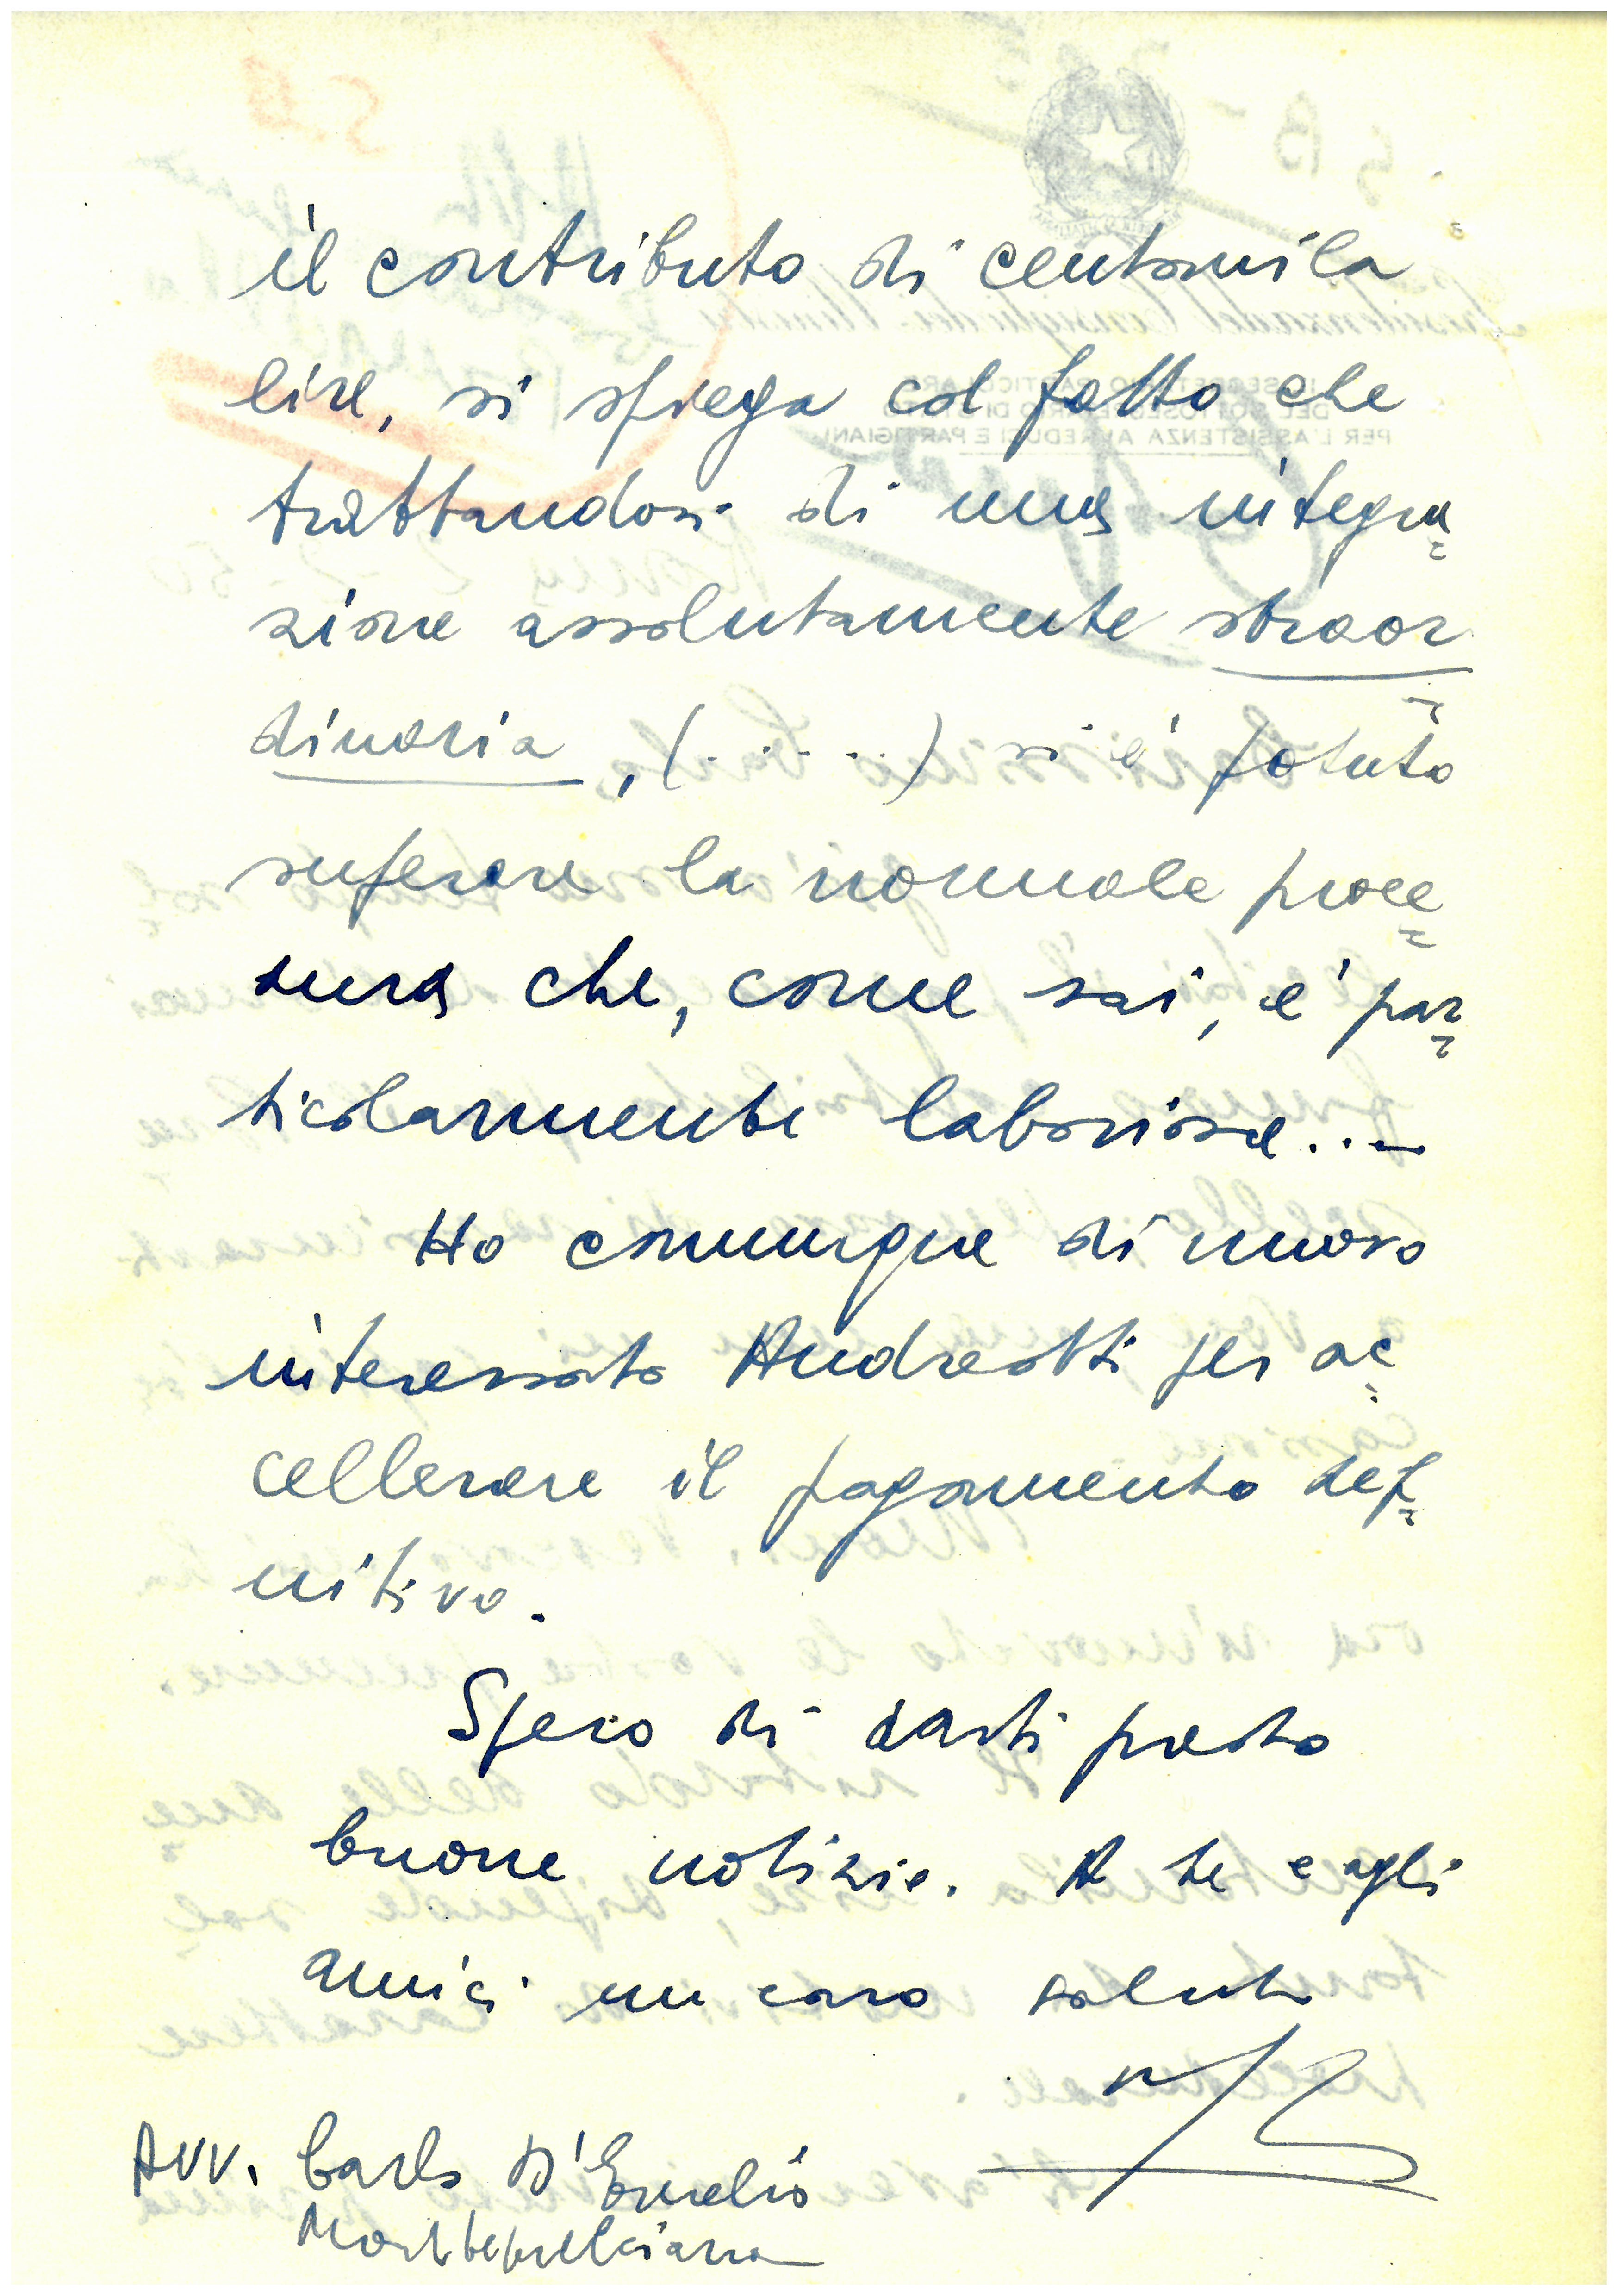 il contributo di centomila
lire, si spiega col fatto che
trattandosi di una integra=
zione assolutamente straor=
dinaria, (.....) si è potuto
superare la normale proce=
dura che, come sai, è par=
ticolarmente laboriosa...
Ho comunque di nuovo
interessato Andreotti per ac=
cellerare il pagamento def=
nitivo.
Spero di darti presto
buone notizie. A te e agli
amici un caro saluto
Avv. Carlo D'
Montepulciano